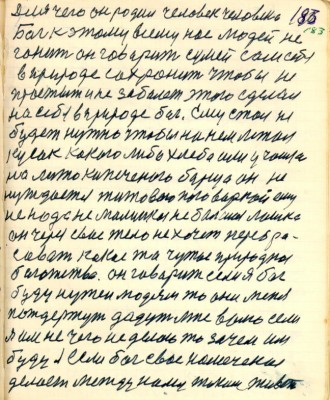 183
Для чего он родил человек человека
183
Бог к этому всему нас людей не
гонит он говорит сумей сам себя
в природе сохранить чтобы не
простыть и не заболеть этого сделал
на себе в природе Бог. Ему стол не
будет нужно чтобы на нем лежал
кусак какого либо хлеба или у чашки
налито кипеченого борща он не
нуждается
ему
не надо не маленькой не большой ложка
он через свое тело не хочет перебра-
сават какое та чужое природное
богатства. он говорит если я Бог
буду нужен людям то они меня
потдержут дадут мне волю если
я им не чего не делаю то зачем им
буду я Если бог свое намечения
делает между нами таким живо